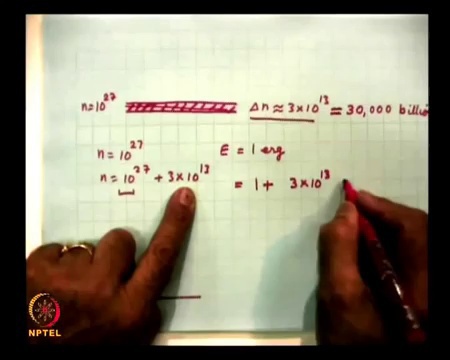 n=10²⁷ Δn ≈ 3×10¹³ = 30,000 billi
n = 10²⁷ E = 1 erg
n = 10²⁷ + 3×10¹³ = 1 + 3×10¹³
NPTEL